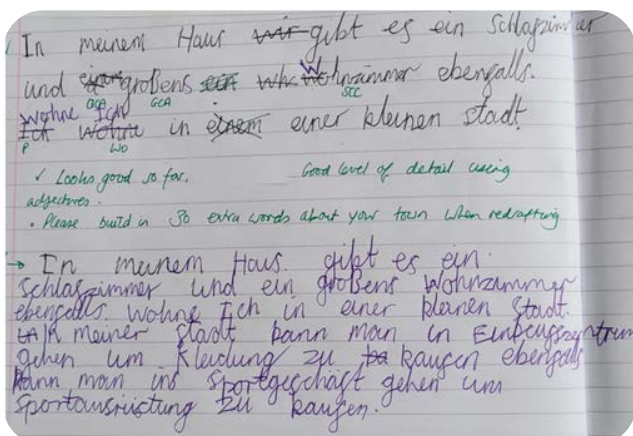 In meinem Haus wir gibt es ein Schlafzimmer
und einen großens ein Wh Wohnzimmer ebenfalls.
OCA GCA SCC
wohne Ich
Ich wohne in einem einer kleinen stadt.
P WO
✓ Looks good so far. Good level of detail using
adjectives.
• Please build in 30 extra words about your town when redrafting
→ In meinem Haus. gibt es ein.
Schlafzimmer und ein großens Wohnzimmer
ebenfalls. Wohne Ich in einer kleinen Stadt.
In meiner stadt kann man in Einkaufszentrum
gehen um Kleidung zu kaufen ebenfalls
kann man ins Sportgeschäft gehen um
Sportausrüstung zu kaufen.